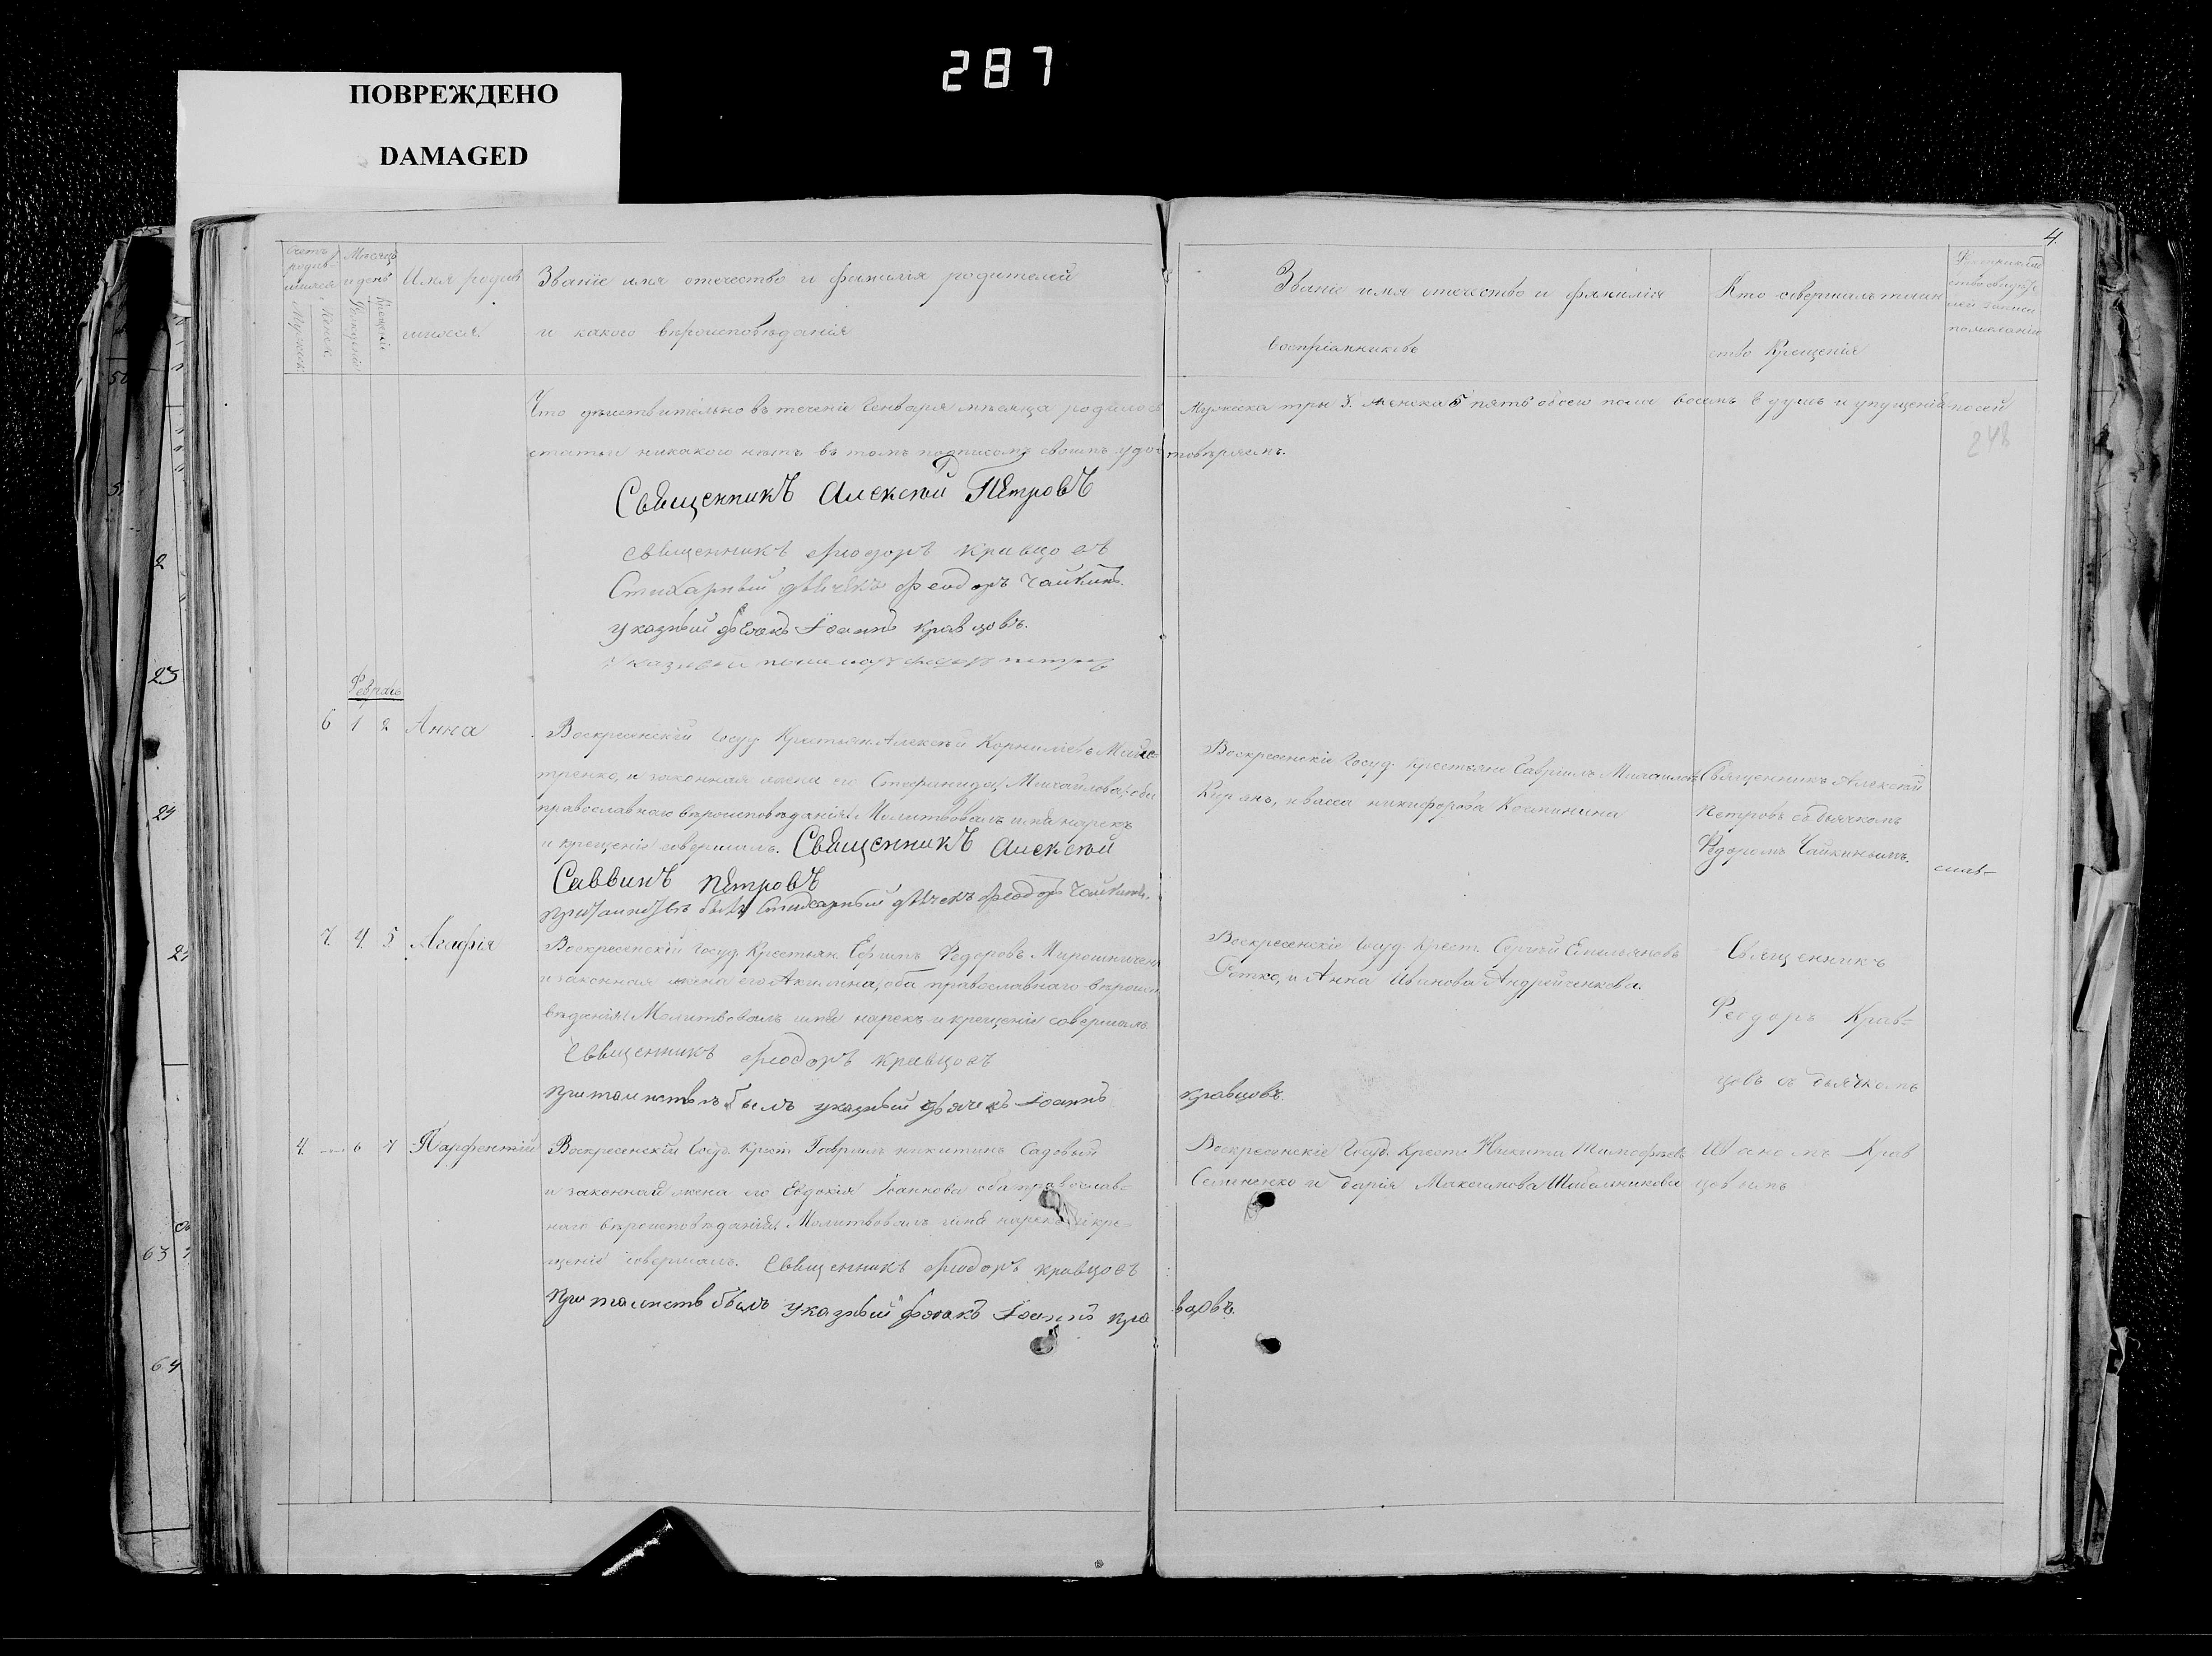 287
ПОВРЕЖДЕНО
DAMAGED
4.
Счетъ родившихся
Мужеск.
Женск.
Мѣсяцъ и день
Рожденія
Крещенія
Имя родив
шихся.
Званіе имя отечество и фамилія родителей
и какого вѣроисповѣданія
Званіе имя отечество и фамилія
воспріемниковъ
Кто совершалъ таин
ство Крещенія
Что дѣиствительно въ теченіе Генваря мѣсяца родилось Мужеска три 3. женска 5 пять обоего пола восемь 8 душъ и упущенія по сей
статьи никакого нѣтъ въ томъ подписомъ своимъ удостовѣряемъ.
248
Священникъ Алексѣй Петровъ
Священникъ Ѳеодоръ Кравцовъ
Стихарный дьячекъ Ѳеодоръ Чайкинъ.
указный дьячокъ Іоаннъ Кравцовъ.
Указный пономарь Ѳедоръ Петровъ
Февраль
6 1 2 Анна
Воскресенскій Госуд. Крестьян. Алексѣй Корниліевъ
тренко, и законная жена его Стефанида Михайлова, оба
православнаго вѣроисповѣданія. Молитвовалъ имя нарекъ
и крещеніе совершалъ. Священникъ Алексѣй
Саввинъ Петровъ
при таинствѣ былъ Стихарный дьячекъ Ѳеодоръ Чайкинъ.
Воскресенскіе Госуд. Крестьяне Гавріилъ Михаиловъ
никифорова
Священникъ Алексѣй
Петровъ съ дьячкомъ
Ѳедоромъ Чайкинымъ.
7. 4. 5 Агафія
Воскресенскій Госуд. Крестьян. Ефимъ Федоровъ Мирошничен
и законная жена его Акилина, оба православнаго вѣроиспо
вѣданія. Молитвовалъ имя нарекъ и крещеніе совершалъ
Священникъ Ѳеодоръ Кравцовъ
при таинствѣ былъ указный дьячекъ Іоаннъ Кравцовъ.
Воскресенскіе Госуд. Крест. Сергѣй Емельяновъ
и Анна Иванова Андрейченкова.
Священникъ
Феодоръ Крав-
цовъ съ дьячкомъ
4. 6 7 Парфентій
Воскресенскій Госуд. Крест. Гавріилъ никитинъ Садовый
и законная жена его Евдокія Іоаннова оба православ-
наго вѣроисповѣданія. Молитвовалъ имя нарекъ и кре-
щеніе совершалъ. Священникъ Ѳеодоръ Кравцовъ
при таинствѣ былъ указный дьячокъ Іоаннъ Кравцовъ.
Воскресенскіе Госуд. Крест. Никита Тимофѣевъ
Семененко и Дарія Максимова Шабельникова
Иваномъ Крав
цовымъ
2
23
24
63
64